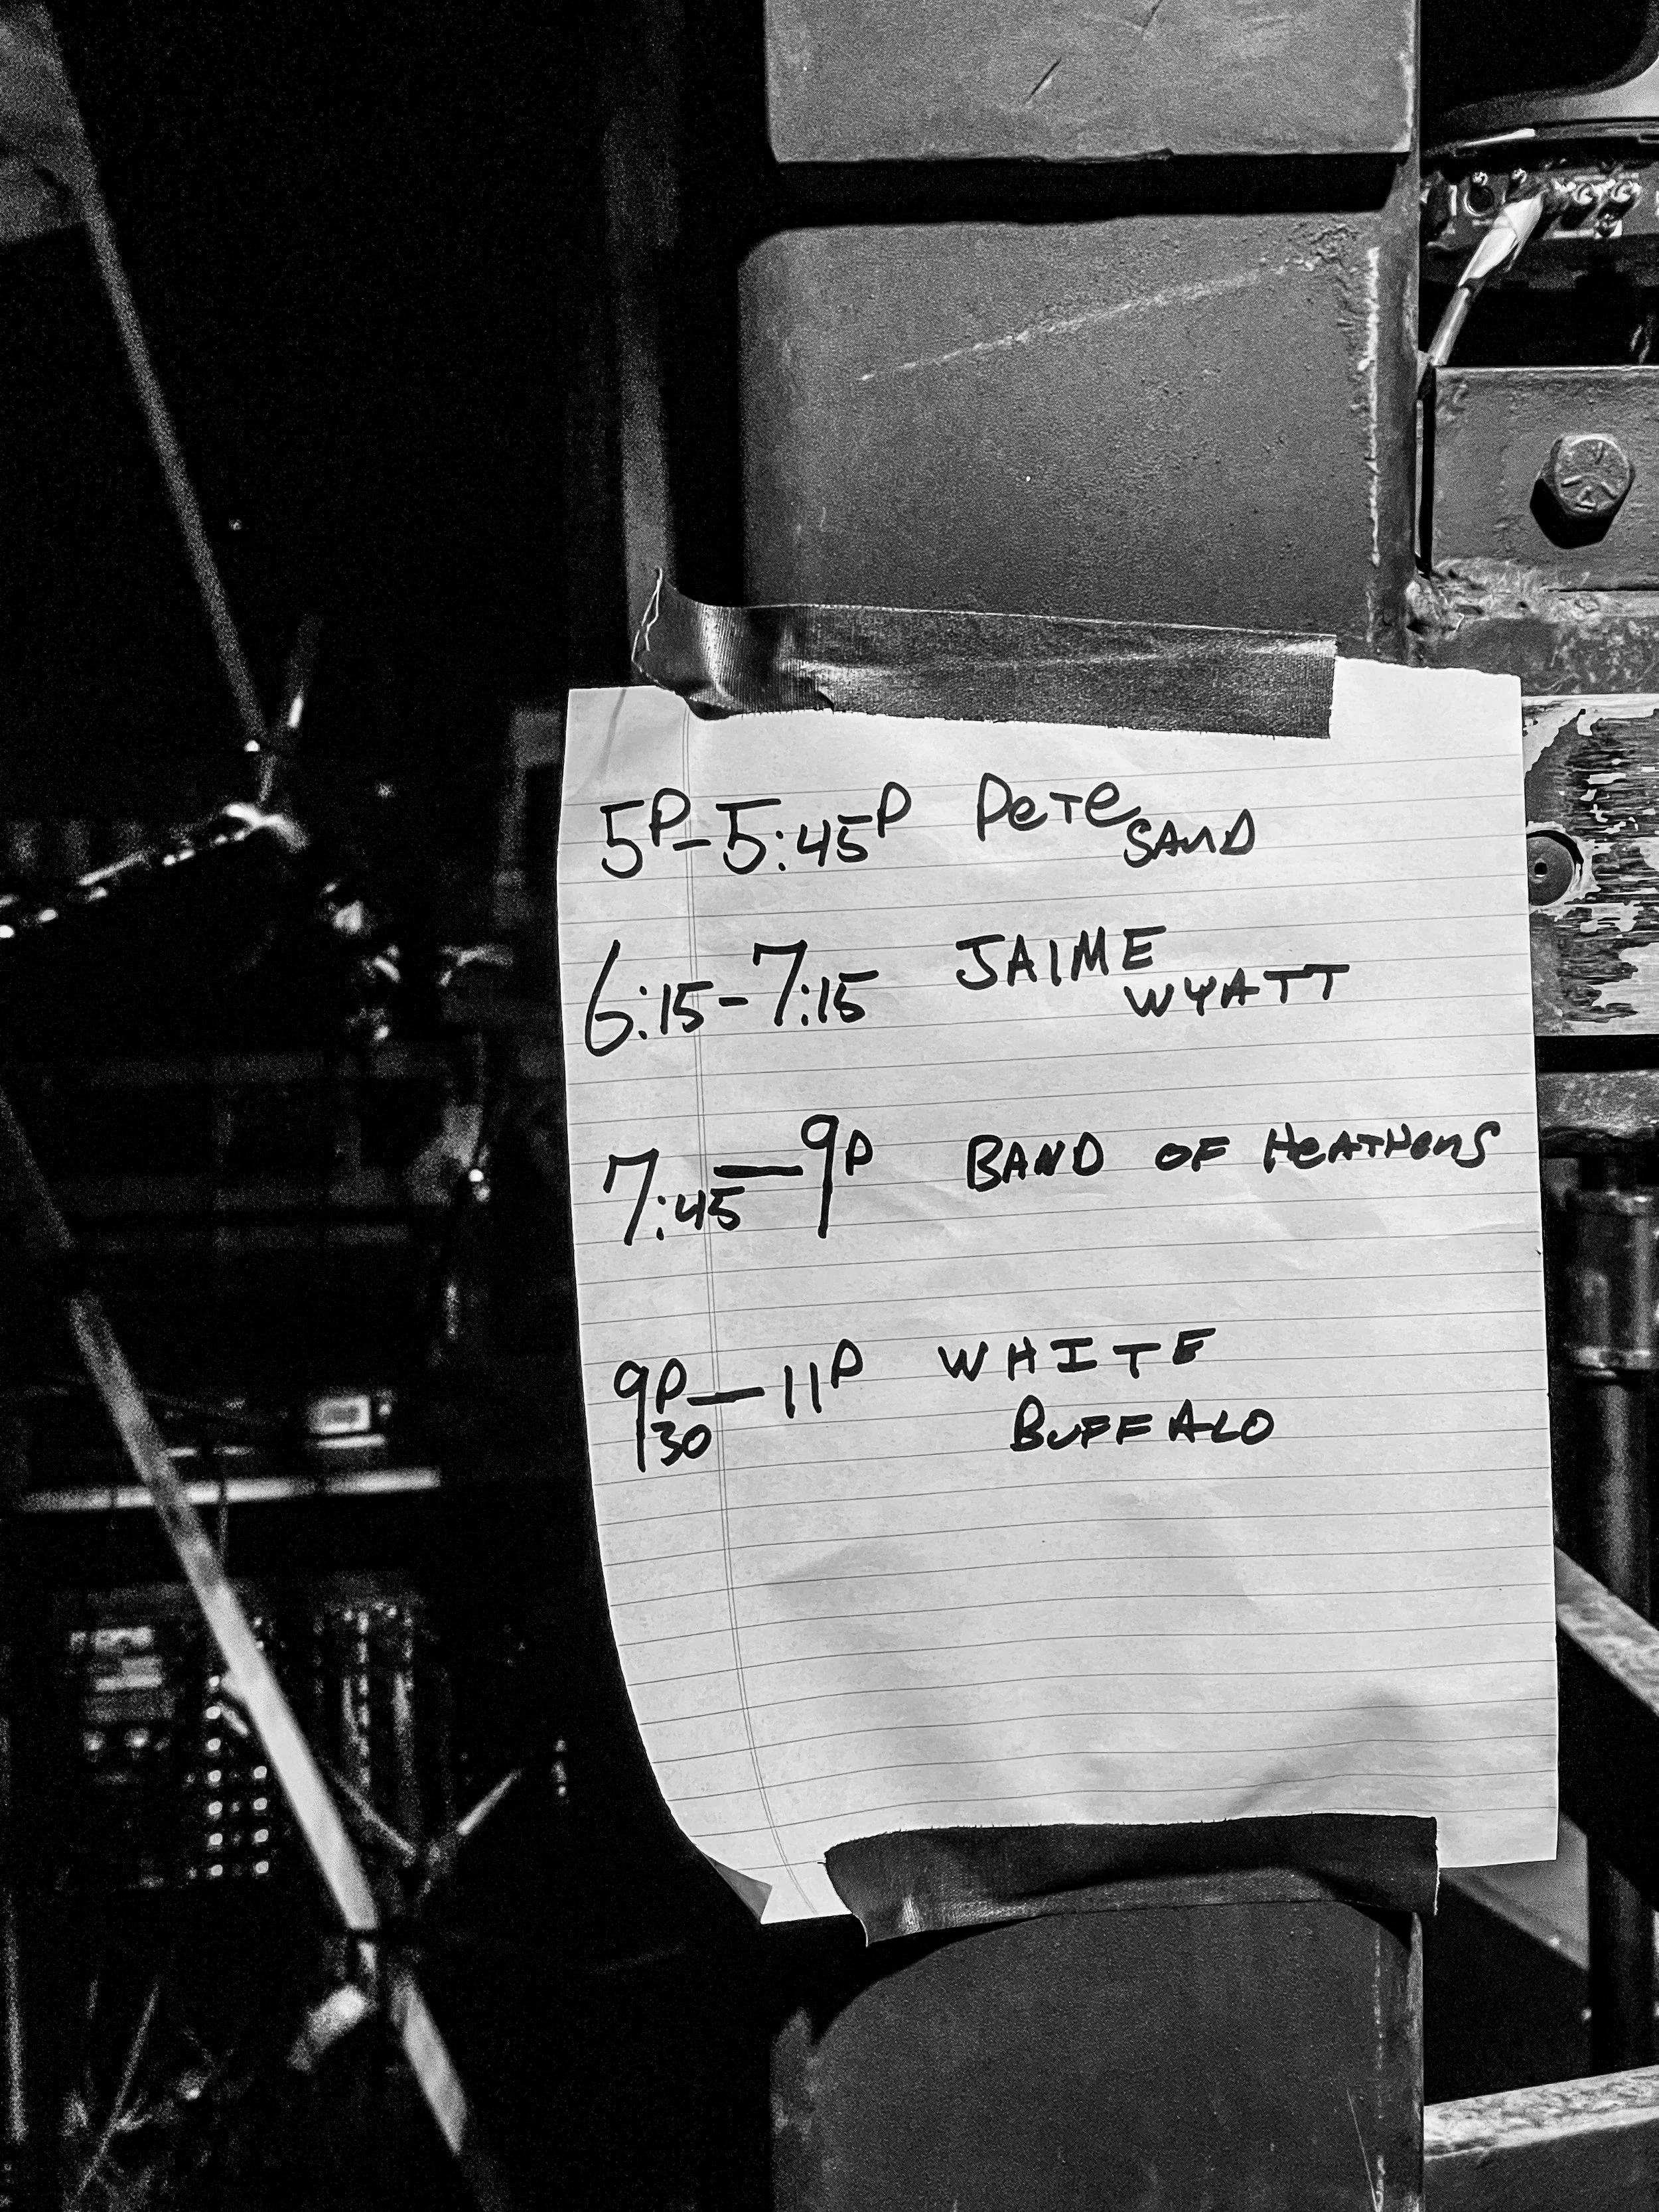 5P-5:45P Pete SAND
6:15-7:15 JAIME WYATT
7:45-9P BAND OF HEATHENS
9P30-11P WHITE BUFFALO